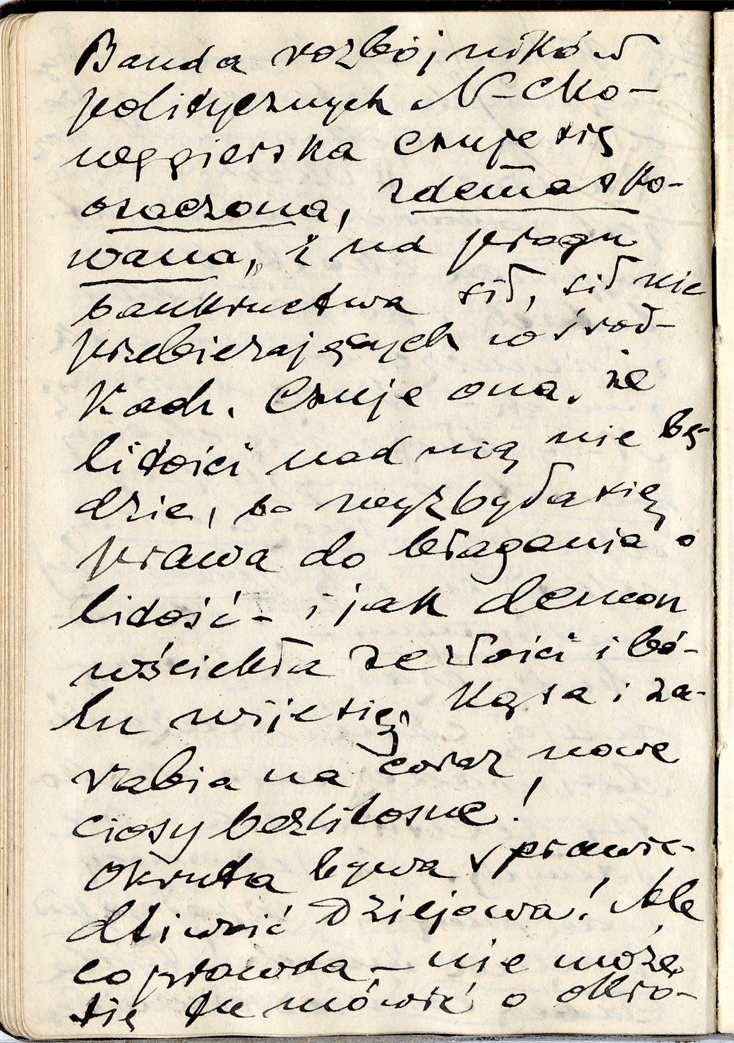 Banda rozbójników
politycznych N-cko-
węgierska czuje się
osaczona, zdemasko-
wana, i na progu
bankructwa sił, sił nie
przebierających w środ-
kach. Czuje ona, że
litości nad nią nie bę-
dzie, bo wyzbyła się
prawa do błagania o
litość - i jak demon
wściekła ze złości i bó-
lu wije się, kąsa i za-
rabia na coraz nowe
ciosy bezlitosne!
Okrutą bywa sprawie-
dliwość dziejowa! Ale
co prawda - nie może
się tu mówić o okru-